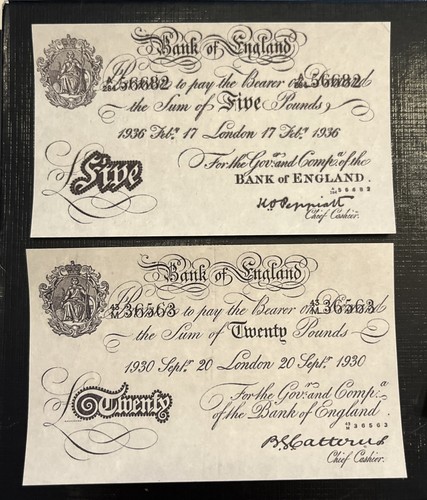 Bank of England
A/284 56682 to pay the Bearer on Demand A/284 56682
the Sum of Five Pounds
1936 Feb.y 17 London 17 Feb.y 1936
For the Gov.r and Comp.a of the
Five BANK of ENGLAND.
K.O. Peppiatt
Chief Cashier.
Bank of England
43/M 36563 to pay the Bearer on Demand 43/M 36563
the Sum of Twenty Pounds
1930 Sept.r 20 London 20 Sept.r 1930
For the Gov.r and Comp.a
Twenty of the Bank of England.
43/M 36563
B.G. Catterns
Chief Cashier.